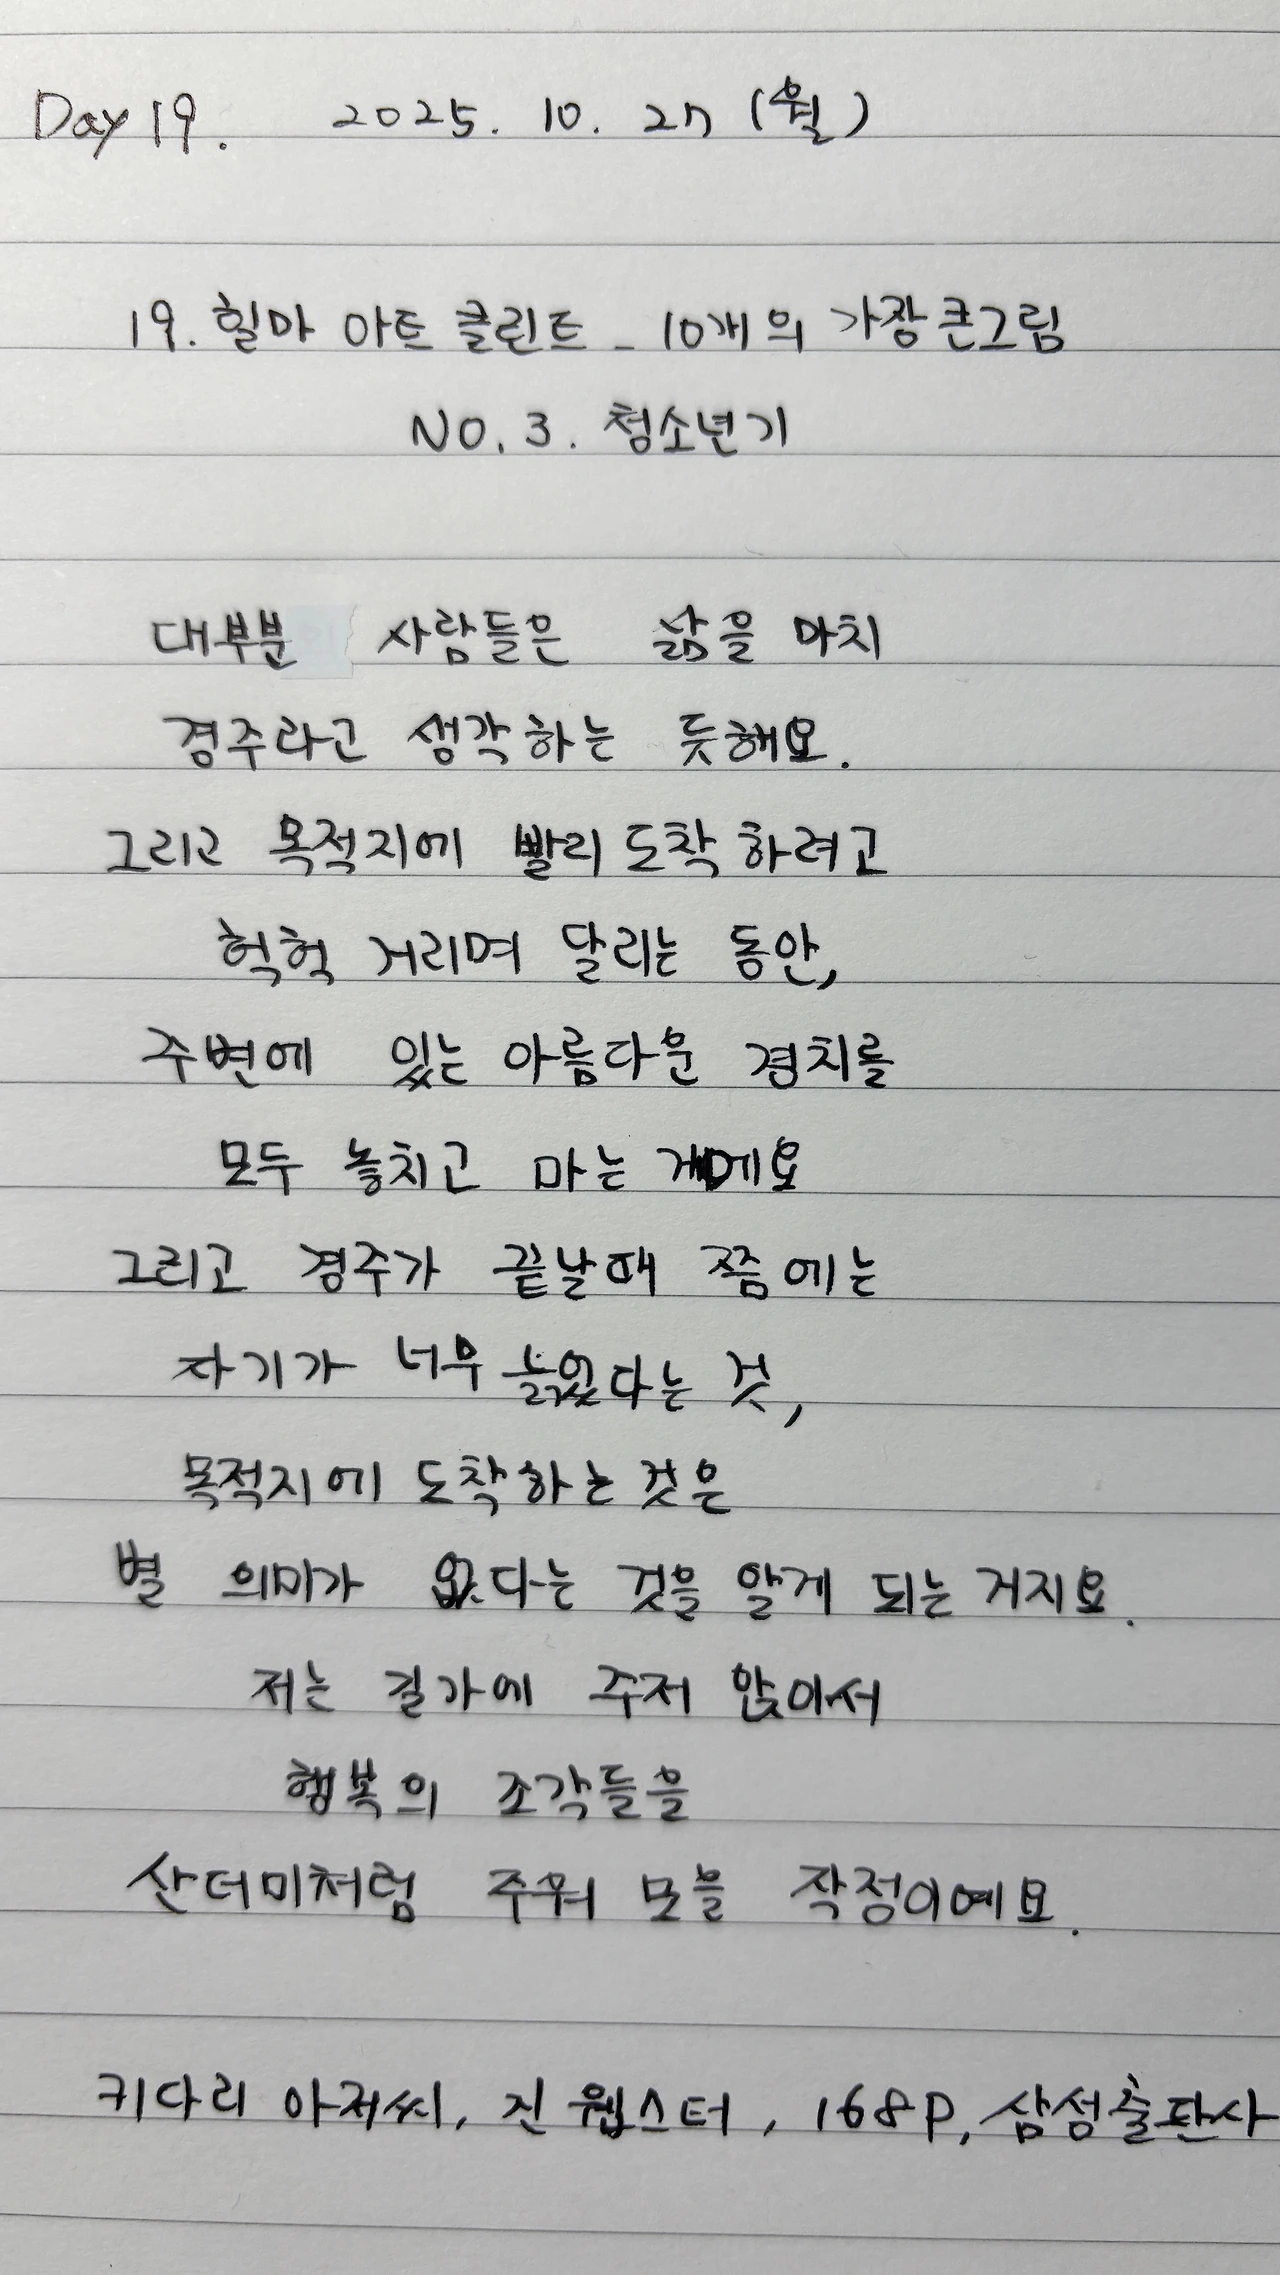 Day 19. 2025. 10. 27 (월)
19. 힐마 아트 클린트 - 10개의 가장 큰그림
NO. 3. 청소년기
대부분 사람들은 삶을 마치
경주라고 생각하는 듯해요.
그리고 목적지에 빨리 도착하려고
헉헉 거리며 달리는 동안,
주변에 있는 아름다운 경치를
모두 놓치고 마는 게예요
그리고 경주가 끝날때 쯤에는
자기가 너무 늙었다는 것,
목적지에 도착하는 것은
별 의미가 없다는 것을 알게 되는 거지요.
저는 길가에 주저 앉아서
행복의 조각들을
산더미처럼 주워 모을 작정이예요.
키다리 아저씨, 진 웹스터, 168p, 삼성출판사